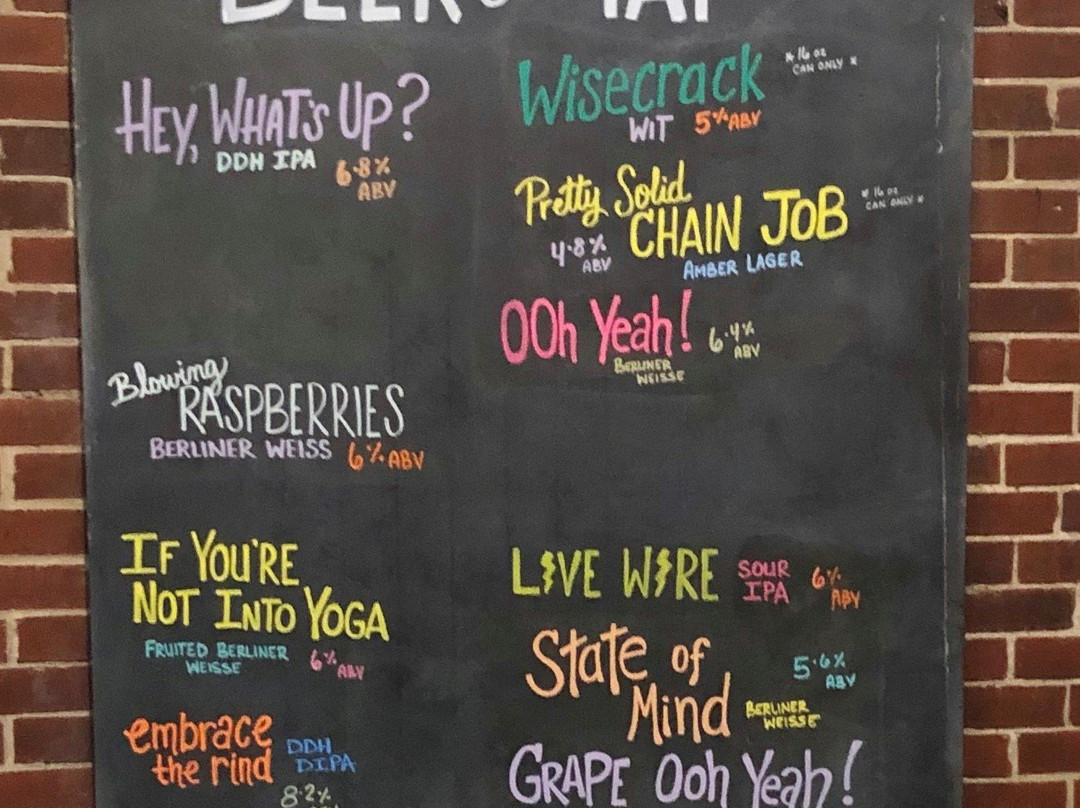 BEER on TAP
HEY, WHAT'S UP?
DDH IPA
6.8% ABV
Blowing
RASPBERRIES
BERLINER WEISS 6% ABV
IF YOU'RE
NOT INTO YOGA
FRUITED BERLINER WEISSE 6% ABV
embrace
the rind
DDH DIPA
8.2%
Wisecrack
* 16 oz CAN ONLY *
WIT 5% ABV
Pretty Solid
CHAIN JOB
* 16 oz CAN ONLY *
4.8% ABV
AMBER LAGER
OOh Yeah!
6.4% ABV
BERLINER WEISSE
LIVE WIRE
SOUR IPA
6% ABV
State of
Mind
5.6% ABV
BERLINER WEISSE
GRAPE Ooh Yeah!